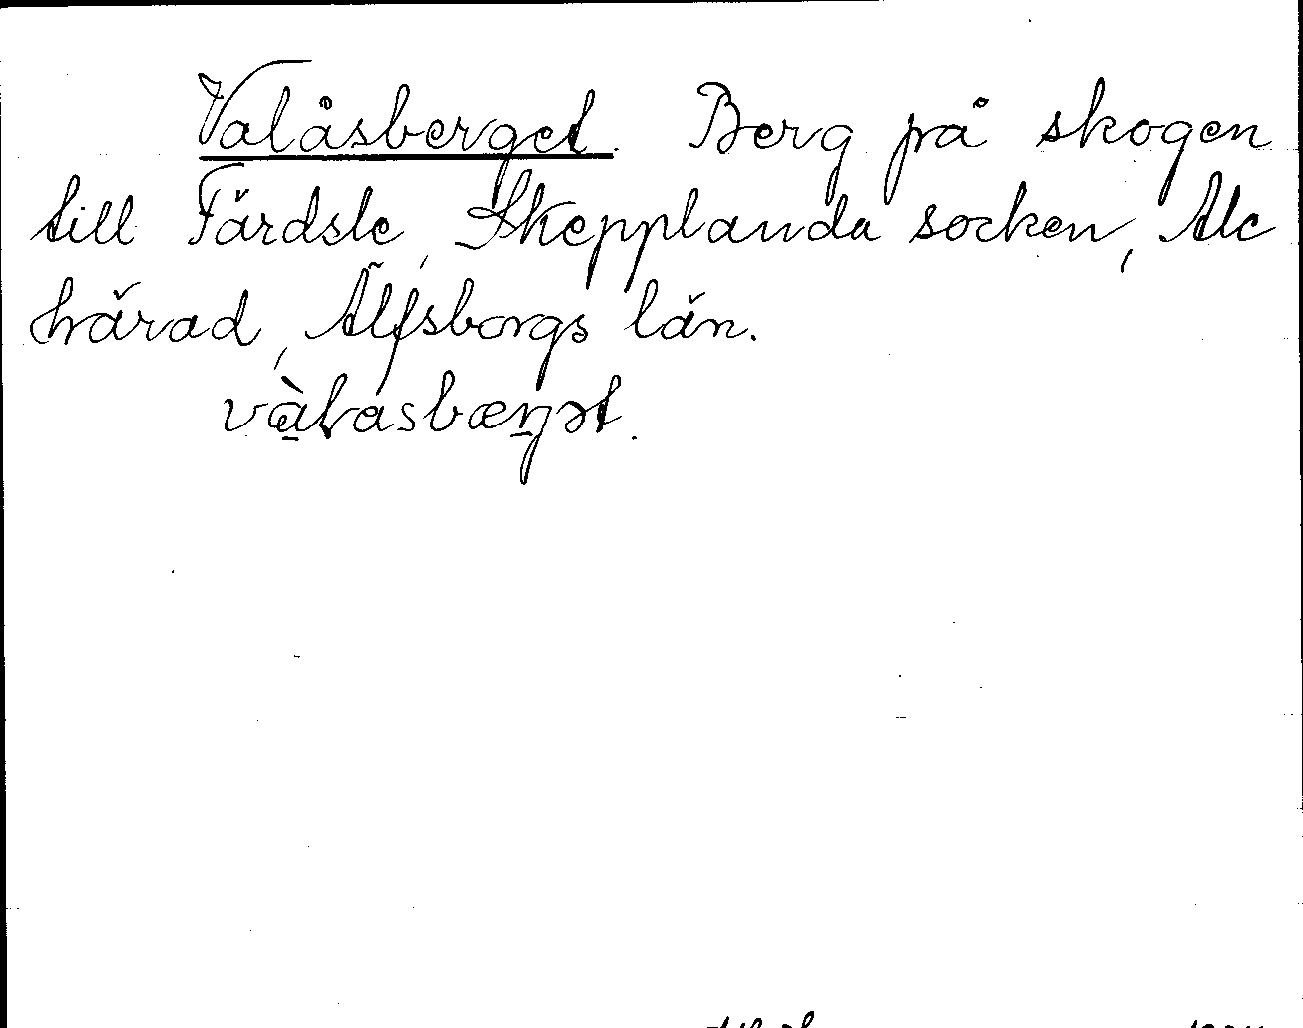 Valåsberget. Berg på skogen
till Färdsle, Skepplanda socken, Ale
härad, Älfsborgs län.